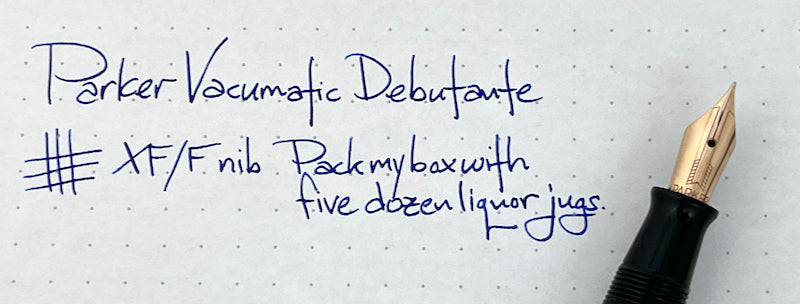 Parker Vacumatic Debutante
XF/F nib Pack my box with
five dozen liquor jugs.
PARKER